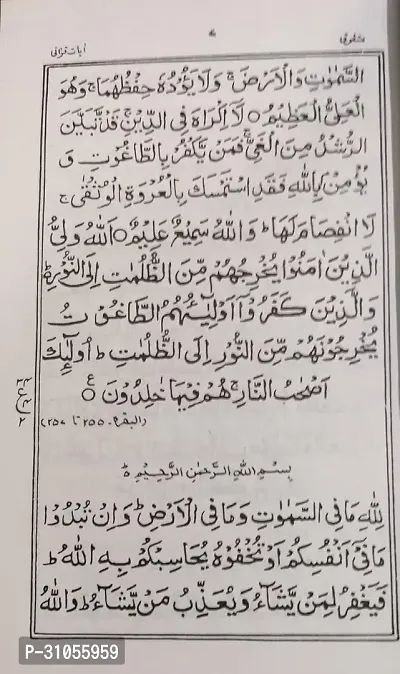 آیات قرآنی
السَّمٰوٰتِ وَالْاَرْضَ ۚ وَلَا یَؤُدُهٗ حِفْظُهُمَا ۚ وَهُوَ
الْعَلِیُّ الْعَظِیْمُ ○ لَآ اِكْرَاهَ فِی الدِّیْنِ ۚ قَدْ تَّبَیَّنَ
الرُّشْدُ مِنَ الْغَیِّ ۚ فَمَنْ یَّكْفُرْ بِالطَّاغُوْتِ وَ
یُؤْمِنْۢ بِاللّٰهِ فَقَدِ اسْتَمْسَكَ بِالْعُرْوَةِ الْوُثْقٰی ۚ
لَا انْفِصَامَ لَهَا ؕ وَاللّٰهُ سَمِیْعٌ عَلِیْمٌ ○ اَللّٰهُ وَلِیُّ
الَّذِیْنَ اٰمَنُوْا یُخْرِجُهُمْ مِّنَ الظُّلُمٰتِ اِلَی النُّوْرِ ؕ
وَالَّذِیْنَ كَفَرُوْۤا اَوْلِیٰٓـُٔهُمُ الطَّاغُوْتُ
یُخْرِجُوْنَهُمْ مِّنَ النُّوْرِ اِلَی الظُّلُمٰتِ ؕ اُولٰٓئِكَ
اَصْحٰبُ النَّارِ ۚ هُمْ فِیْهَا خٰلِدُوْنَ ○
(البقرۃ۔ ۲۵۵ تا ۲۵۷)
بِسْمِ اللّٰهِ الرَّحْمٰنِ الرَّحِیْمِ ○
لِلّٰهِ مَا فِی السَّمٰوٰتِ وَمَا فِی الْاَرْضِ ؕ وَاِنْ تُبْدُوْا
مَا فِیْۤ اَنْفُسِكُمْ اَوْ تُخْفُوْهُ یُحَاسِبْكُمْ بِهِ اللّٰهُ ؕ
فَیَغْفِرُ لِمَنْ یَّشَآءُ وَیُعَذِّبُ مَنْ یَّشَآءُ ؕ وَاللّٰهُ
P-31055959